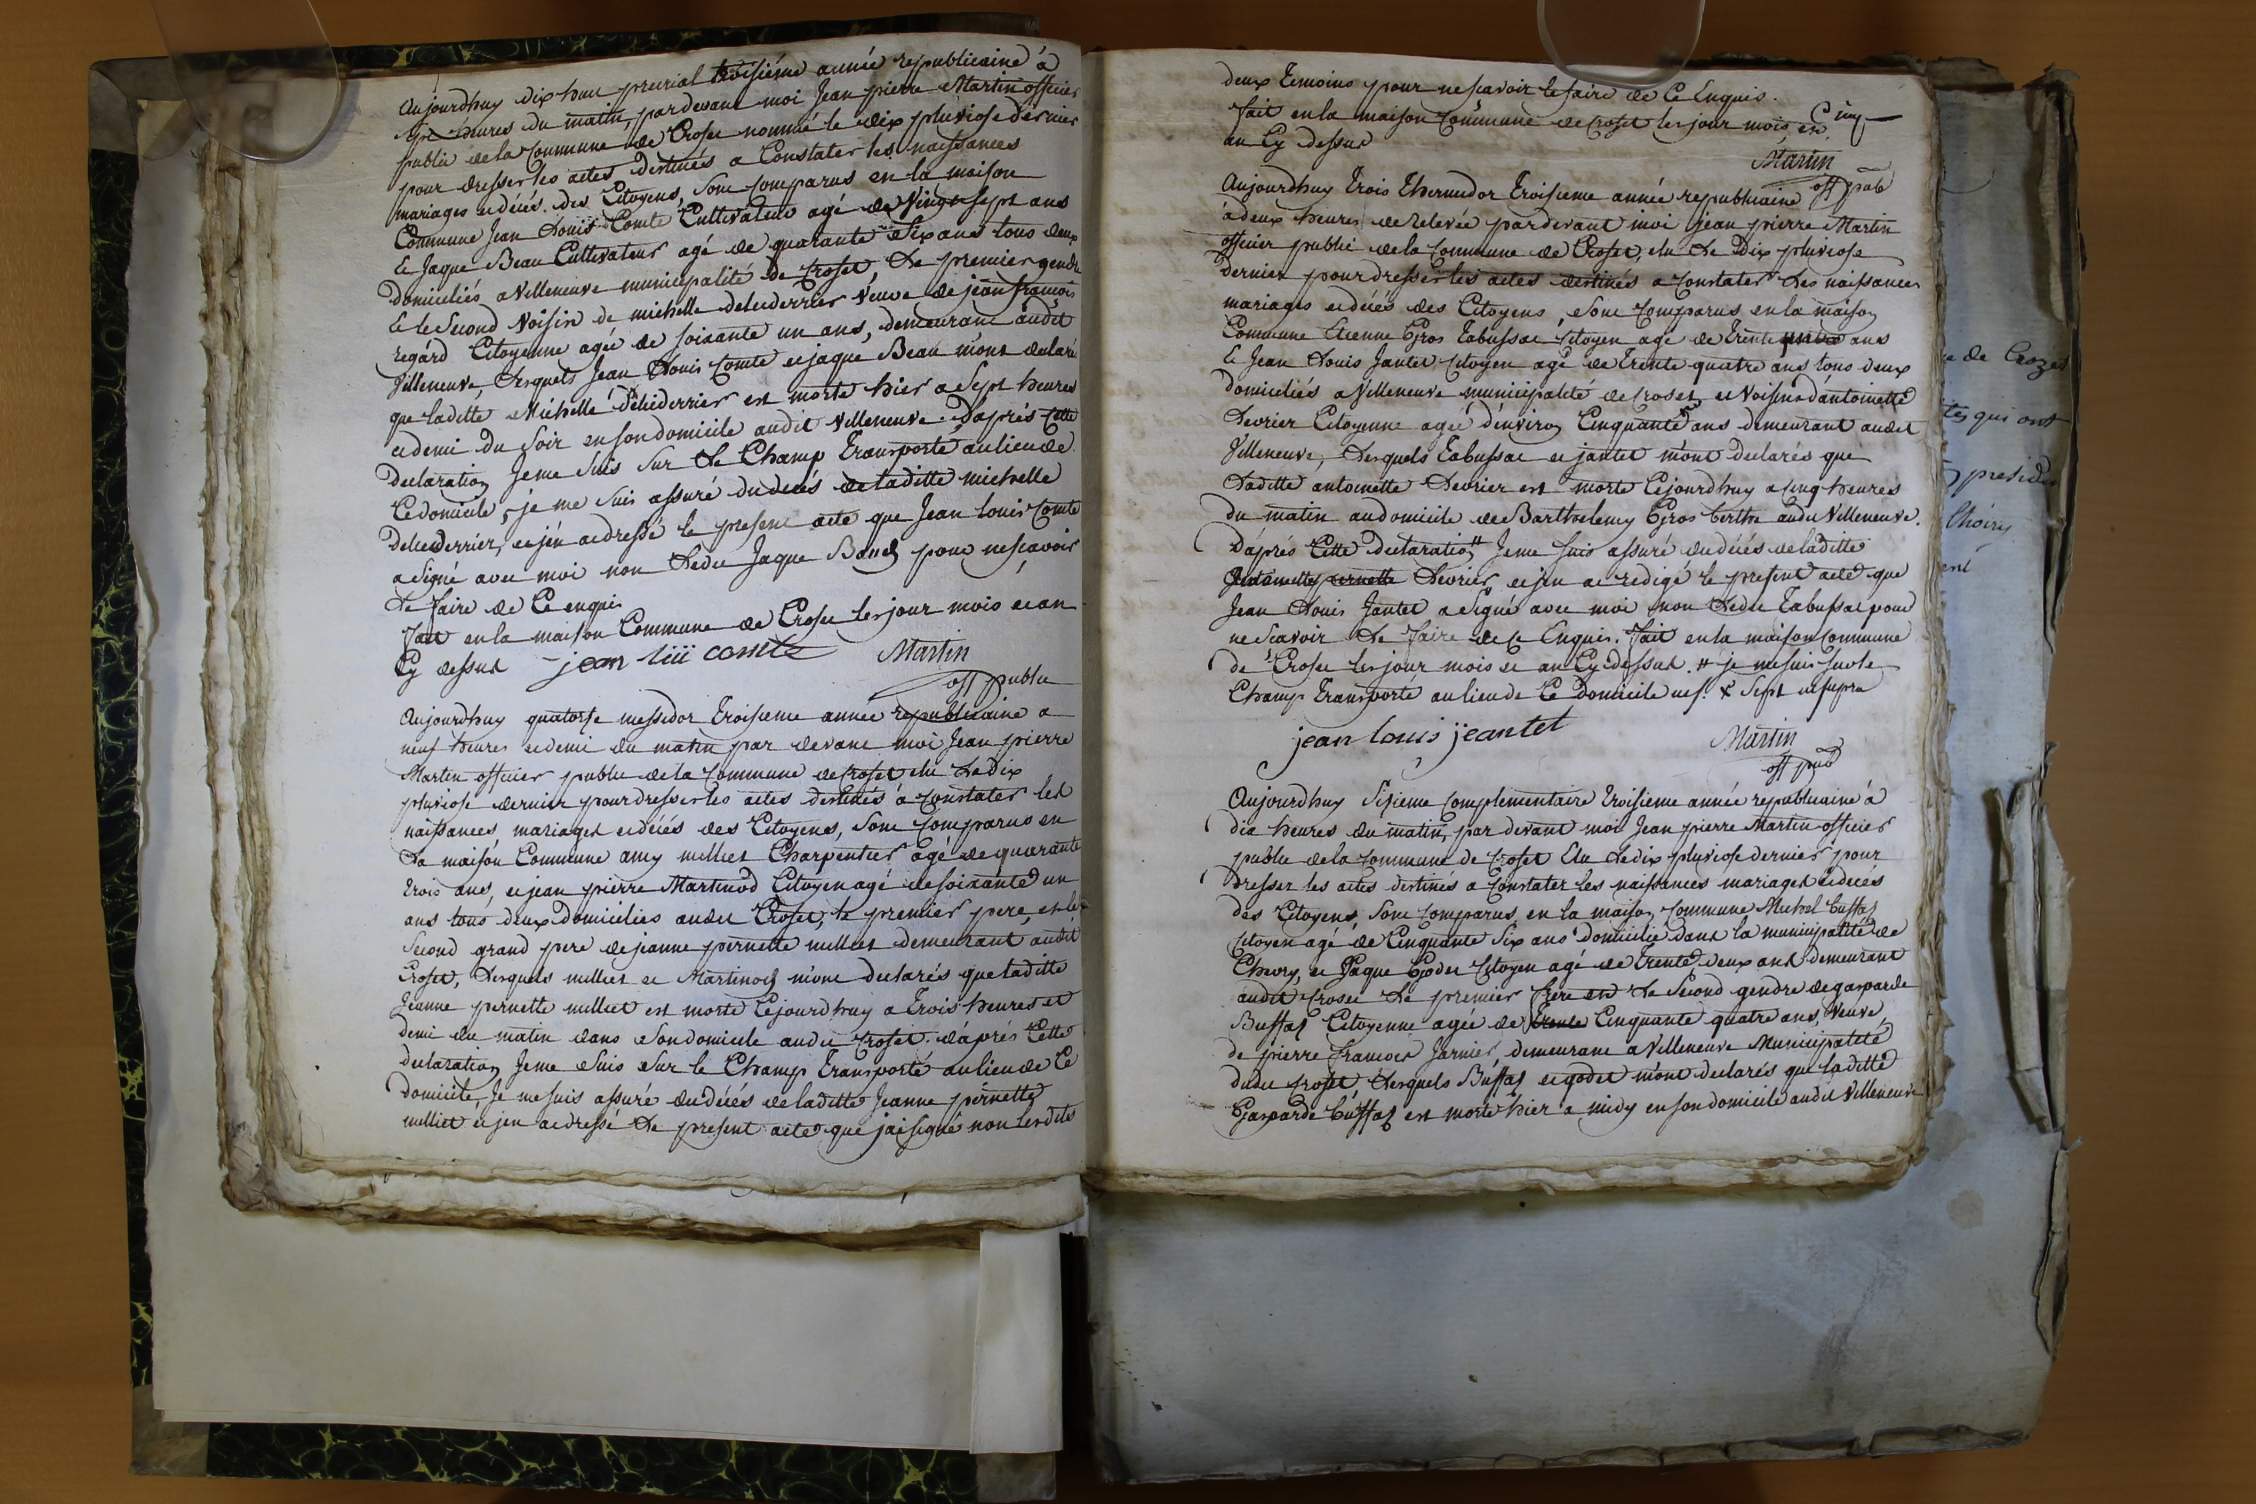 Aujourdhuy dix huit preirial troisiéme année republicaine á
heures du matin, pardevant moi Jean pierre Martin officier
public de la Commune de Croset nommé le dix pluviose dernier
pour dresser les actes destinés a Constater les naissances
mariages et décés des Citoyens, sont comparus en la maison
Commune Jean Louis Comte Cultivateur agé de vingt sept ans
et Jaque Beau Cultivateur agé de quarante six ans tous deux
domiciliés a Villeneuve municipalité de Croset, Le premier gendre
et le second Voisin de michelle delederrier veuve de jean françois
regard Citoyenne agée de soixante un ans, demeurant audit
Villeneuve, Lesquels Jean Louis Comte et jaque Beau m'ont declaré
que laditte Michelle Delederrier est morte hier a Sept heures
et demi du soir en son domicile audit Villeneuve. D'aprés cette
declaration Je me suis sur Le Champ Transporté au lieu de
Ce domicile, je me suis assuré du decés de laditte michelle
Delederrier, et j'en ai dressé le present acte que Jean louis Comte
a signé avec moi non Ledit Jaque Beau pour ne sçavoir
Le faire de Ce enquis
fait en la maison Commune de Croset les jour mois et an
Cy dessus jean luii comte Martin
off public
Aujourdhuy quatorse messidor troisieme année republicaine a
neuf heures et demi du matin par devant moi Jean pierre
Martin officier public de la Commune de Croset elu Le dix
pluviose dernier pour dresser les actes destinés a Constater les
naissances, mariages et décés des Citoyens, sont Comparus en
La maison Commune amy milliet Charpentier agé de quarante
trois ans, et jean pierre Martinod Citoyen agé de soixante un
ans tous deux domiciliés audit Croset, le premier pere, et le
second grand pere de jeanne pernette milliet demeurant audit
Croset, Lesquels milliet et Martinod m'ont declarés que laditte
Jeanne pernette milliet est morte Cejourdhuy a trois heures et
demi du matin dans son domicile audit Croset. d'aprés Cette
declaration Je me suis sur le Champ Transporté au lieu de Ce
domicile, Je me suis assuré du décés de laditte Jeanne pernette
milliet et j'en ai dressé Le present acte que j'ai signé non lesdits
deux Temoins pour ne scavoir le faire de Ce Enquis.
fait en la maison Commune de Croset les jour mois et
an Cy dessus
Martin
off pub
Aujourdhuy Trois Thermidor Troisieme année republicaine
á deux heures de relevée pardevant moi jean pierre Martin
officier public de la Commune de Croset, elu Le Dix pluviose
dernier pour dresser les actes destinés a Constater Les naissances
mariages et décés des Citoyens, sont Comparus en la maison
Commune Etienne Gros Tabussat Citoyen agé de Trente ans
et Jean Louis Jantet Citoyen agé de Trente quatre ans tous deux
domiciliés a Villeneuve municipalité de Croset et Voisins d'antoinette
Levrier Citoyenne agée d'environ Cinquante ans demeurant audit
Villeneuve, Lesquels Tabussat et jantet m'ont declarés que
Laditte antoinette Levrier est morte Cejourdhuy a cinq heures
du matin au domicile de Barthelemy Gros berthe audit Villeneuve.
D'aprés Cette declaration # Je me suis assuré du décés de laditte
Antoinette pernette Levrier, et j'en ai redigé le present acte que
Jean Louis Jantet a signé avec moi non Ledit Tabussat pour
ne scavoir Le faire de Ce Enquis. fait en la maison Commune
de Croset les jour, mois et an Cy dessus. # je me suis sur le
Champ Transporté au lieu de Ce Domicile Sept ut supra
jean louis jeantet Martin
off pub
Aujourdhuy Sixieme Complementaire troisieme année republicaine á
dix heures du matin, par devant moi Jean pierre Martin officier
public de la Commune de Croset Elu Le dix pluviose dernier pour
dresser les actes destinés a Constater les naissances mariages et decés
des Citoyens, sont Comparus, en la maison Commune Michel buffaz
Citoyen agé de Cinquante Six ans domicilié dans la municipalité de
Chevry, et Jaque Godet Citoyen agé de Trente deux ans demeurant
audit Croset Le premier frere et Le second gendre de gasparde
Buffaz Citoyenne agée de Trente Cinquante quatre ans, veuve
de pierre francois Jarnier, demeurant a Villeneuve Municipalité
dudit Croset, Lesquels Buffaz et godet m'ont declarés que laditte
Gasparde buffaz est morte hier a midy en son domicile audit Villeneuve
de Crozet
qui ont